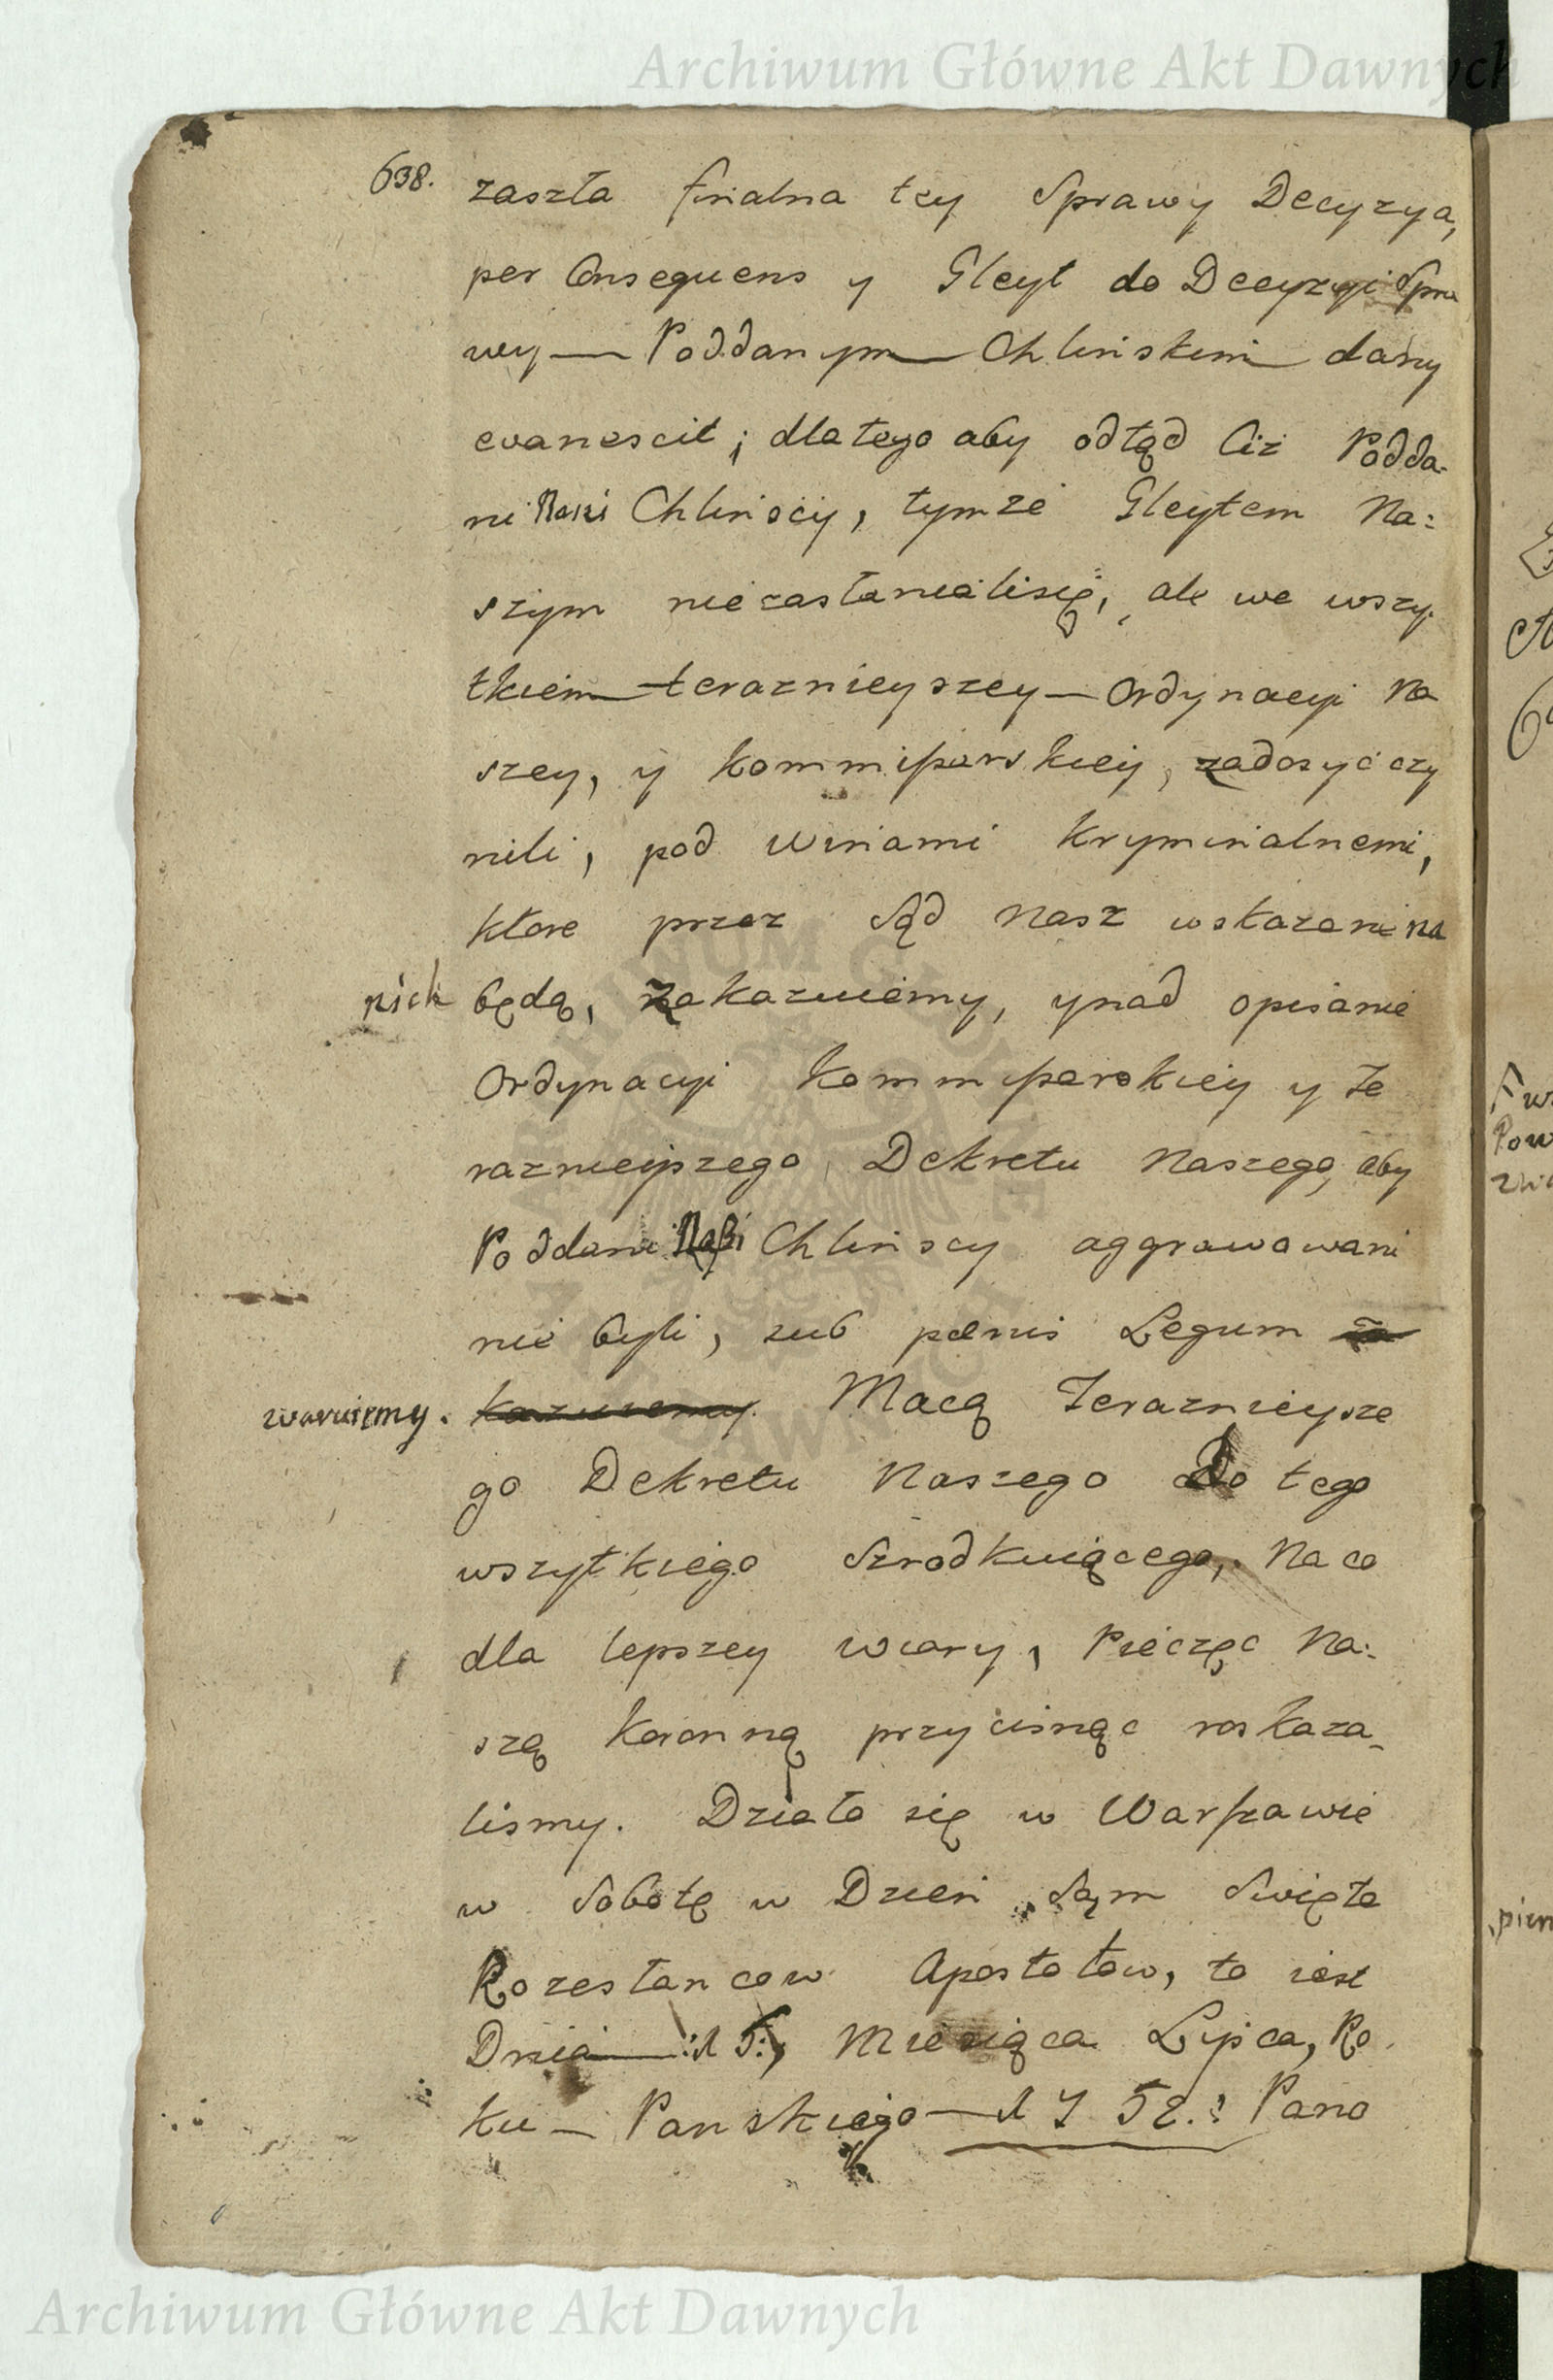 Archiwum Główne Akt Dawnych
638. zaszła finalna tey Sprawy Decyzya,
per Consequens y Gleyt do Decyzyi Spra
wy — Poddanym — Chlińskim — dany
evanescit; dlatego aby odtąd Ciż Podda-
ni Nasi Chlińscy, tymże Gleytem Na:
szym niezastaniali się, ale we wszy.
tkiem — teraznieyszey — Ordynacyi Na
szey, y Kommissarskiey, zadosyć czy
nili, pod winami kryminalnemi,
ktore przez Sąd Nasz wskazane na
nich będą, zakazuiemy, ynad opisanie
Ordynacyi Kommissarskiey y Te
raznieyszego Dekretu Naszego, aby
Poddani Nasi Chlińscy aggrawowani
nie byli, sub pœnis Legum za
waruiemy. kazuiemy. Mocą Teraznieysze
go Dekretu Naszego Do tego
wszytkiego Szrodkuiącego, Na co
dla lepszey wiary, Pieczęc Na:
szą Koronną przycisnąc roskaza-
lismy. Działo się w Warszawie
w Sobotę w Dzień Sąm Święta
Rozesłancow Apostołow, to iest
Dnia — :15:, Miesiąca Lipca, Ro.
ku — Panskiego — 1752.: Pano
Archiwum Główne Akt Dawnych